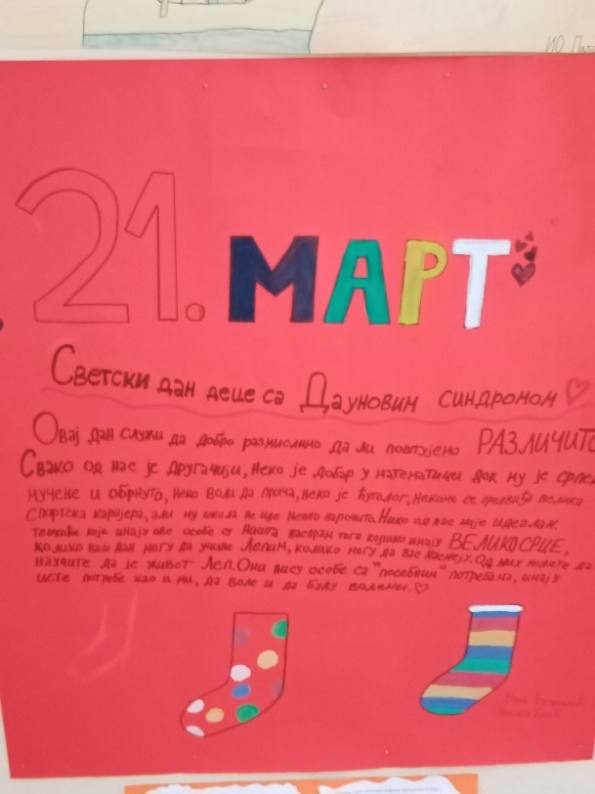 21. МАРТ
Светски дан деце са Дауновим синдромом
Овај дан служи да добро размислимо да ли поштујемо РАЗЛИЧИТО
Свако од нас је другачији, неко је добар у математици док му је српс
мучење и обрнуто, неко воли да прича, неко је ћуталог, некоме се предвиђа велика
спортска каријера, али му школа не иде нешто нарочито. Нико од нас није идеалан.
које имају ове особе су ништа насправ тога колико имају ВЕЛИКО СРЦЕ,
колико вам дан могу да учине Лепим, колико могу да вас насмеју. Од њих можете да
научите да је живот Леп. Они нису особе са "посебним" потребама, имају
исте потребе као и ми, да воле и да буду вољени.